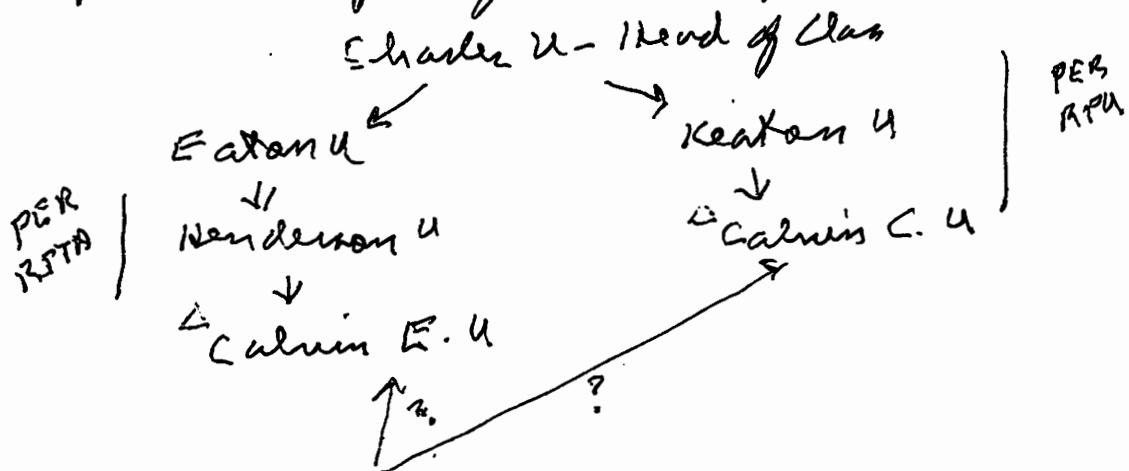 Charles U - Head of Clan
Eaton U
Keaton U
PER
RPU
PER
RPTA
Henderson U
Calvin C. U
Calvin E. U
?
?